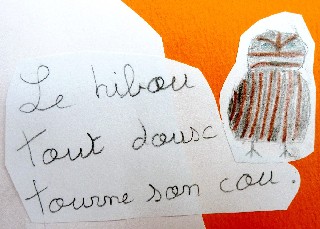 Le hibou
tout dousc
tourne son cou.